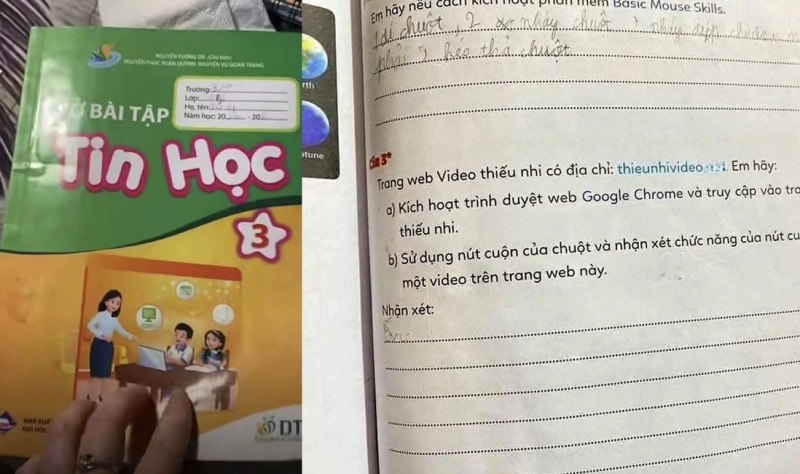 NGUYỄN TƯƠNG TRI (Chủ biên)
NGUYỄN PHÚC XUÂN QUỲNH, NGUYỄN VŨ ĐOAN TRANG
Trường:
Lớp:
Họ, tên:
Năm học: 20 - 20
BÀI TẬP
Tin Học
3
NHÀ XUẤT
ĐẠI HỌC
DT
rth
ptune
Em hãy nêu cách kích hoạt phần mềm Basic Mouse Skills.
chuột, 2 nháy chuột 3 nháy
phải 5 kéo thả chuột
3*
Trang web Video thiếu nhi có địa chỉ: thieunhivideo Em hãy:
a) Kích hoạt trình duyệt web Google Chrome và truy cập vào tra
thiếu nhi.
b) Sử dụng nút cuộn của chuột và nhận xét chức năng của nút cu
một video trên trang web này.
Nhận xét: